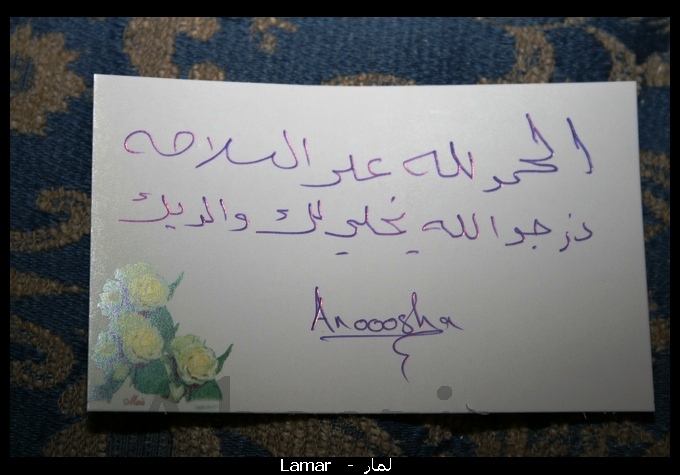 الحمد لله على السلامه
نرجوا الله يخلي لك والديك
Anooosha
Lamar - لمار